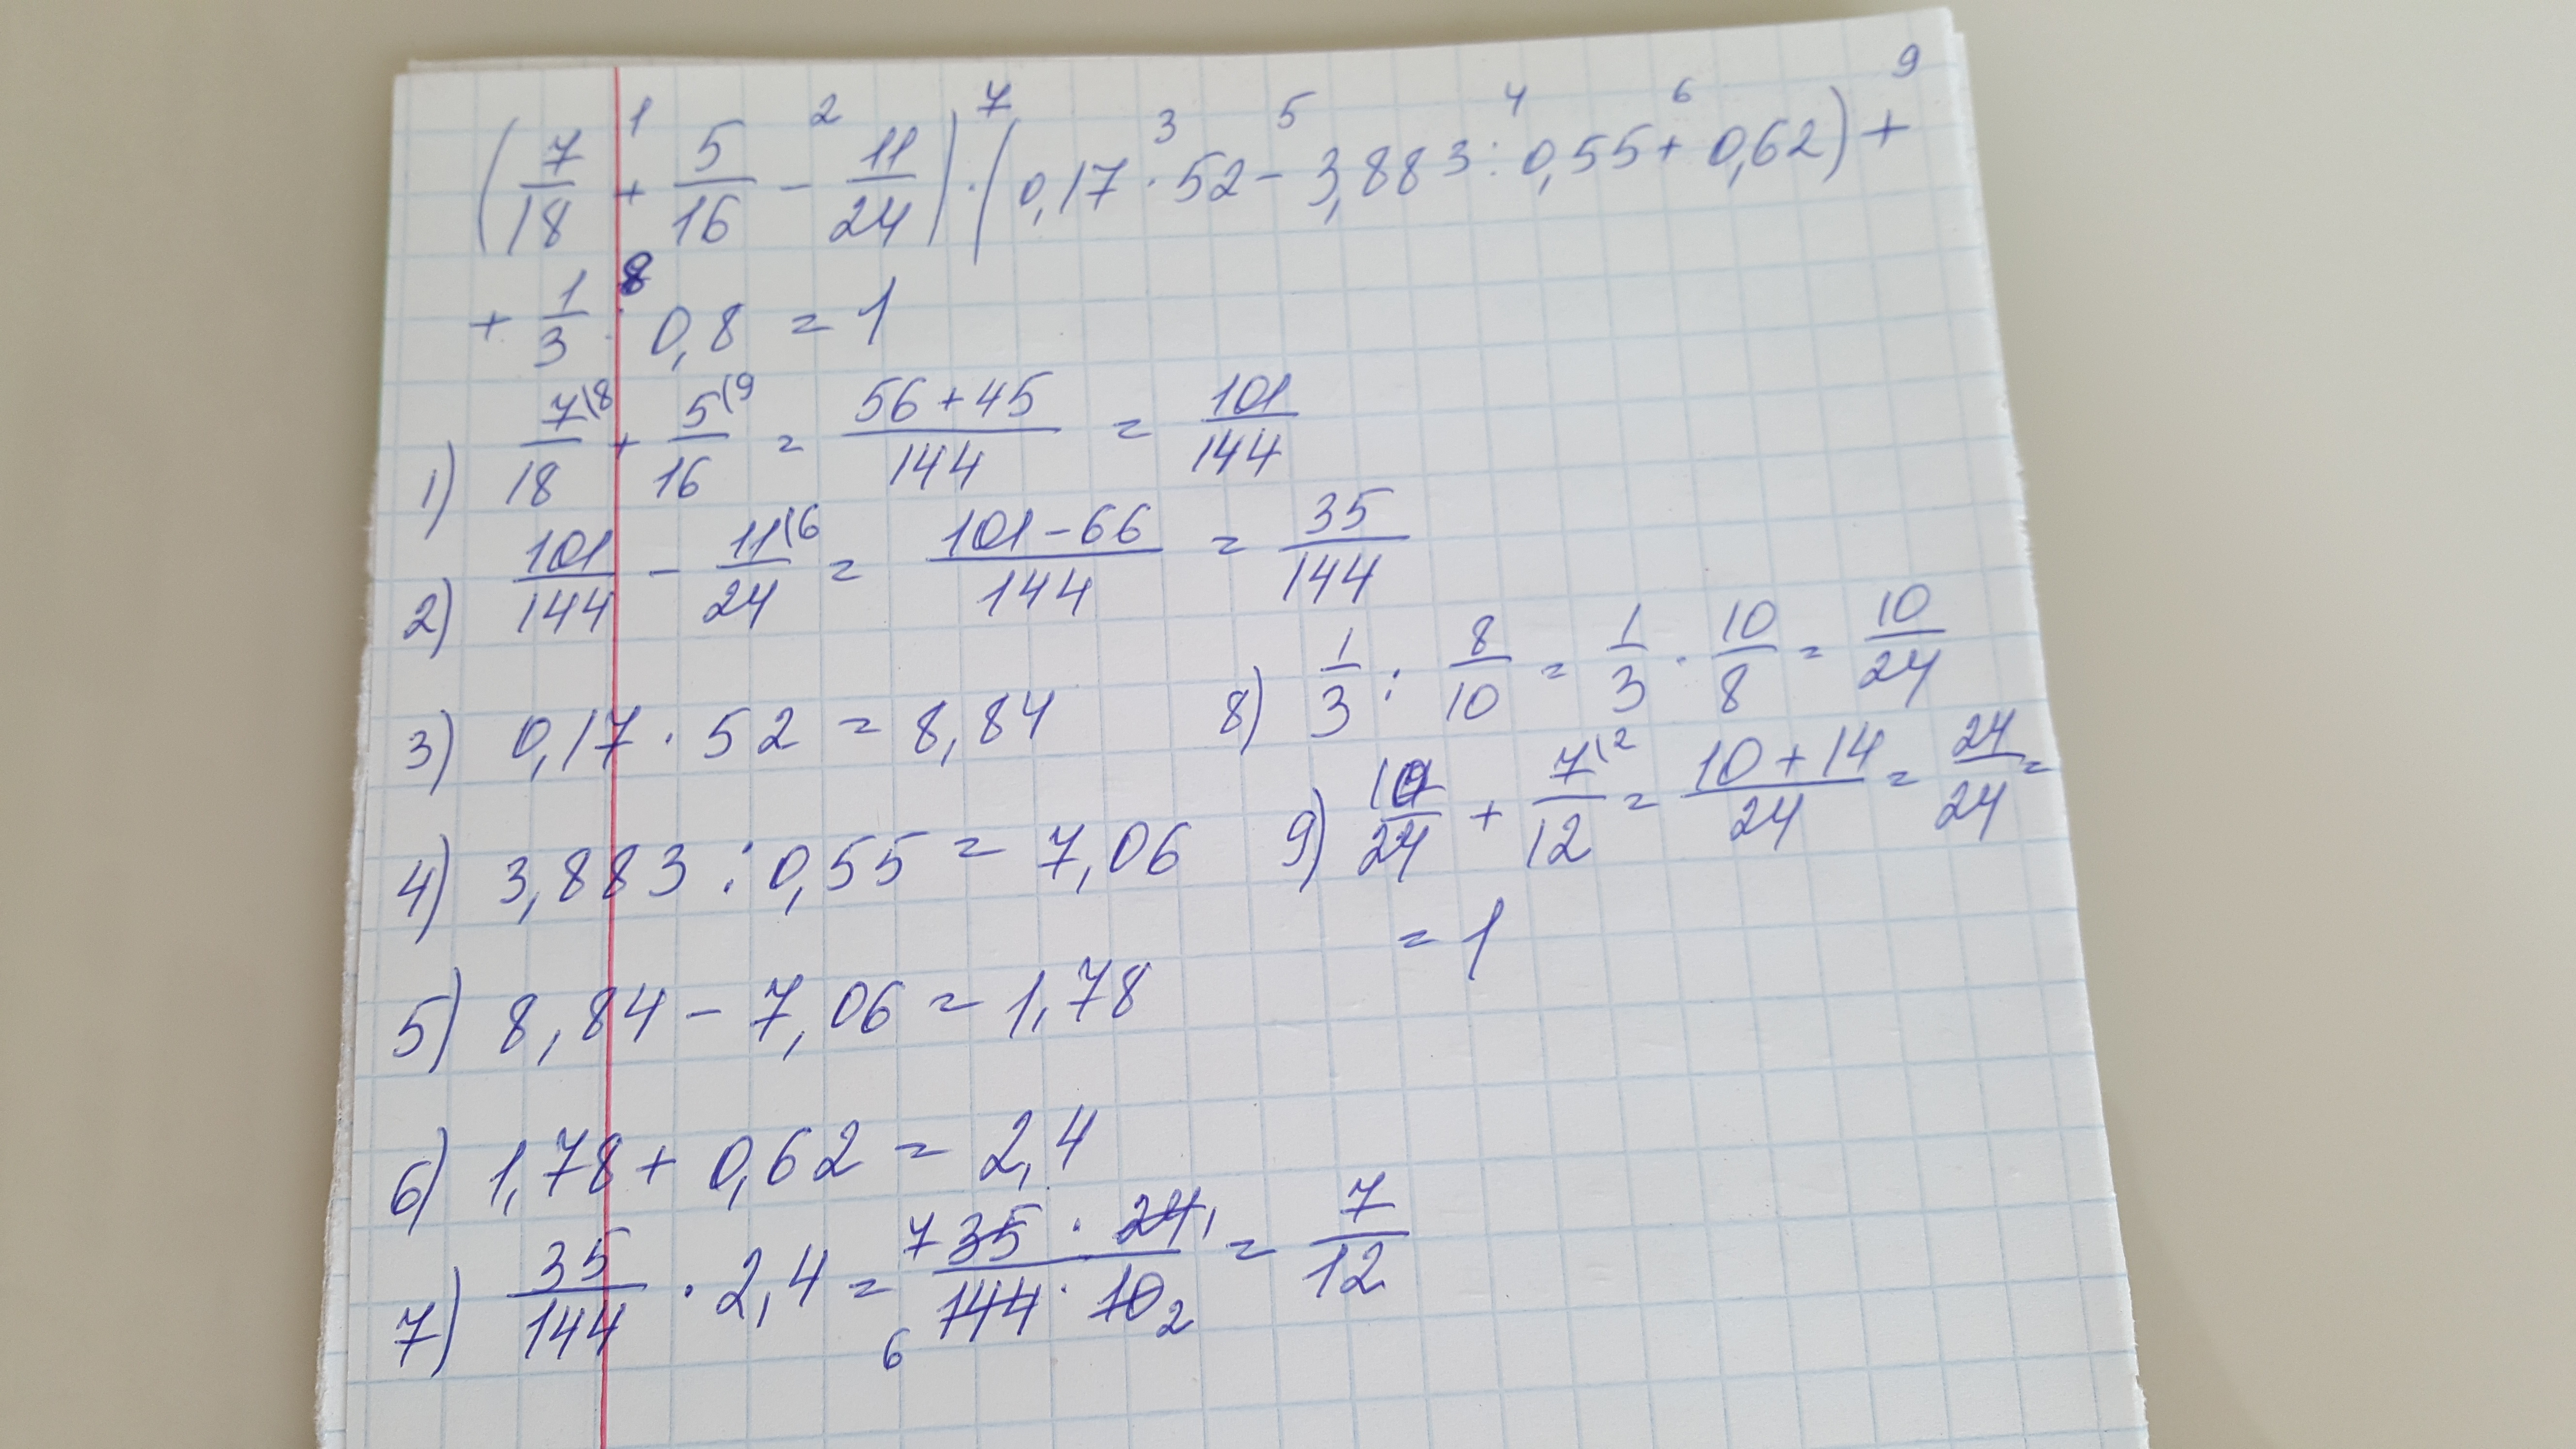 (7/18 + 5/16 - 11/24) · (0,17 · 52 - 3,883 : 0,55 + 0,62) +
1 2 7 3 5 4 6 9
+ 1/3 : 0,8 = 1
8
1) 7/18 (8 + 5/16 (9 = (56 + 45)/144 = 101/144
2) 101/144 - 11/24 (6 = (101 - 66)/144 = 35/144
3) 0,17 · 52 = 8,84
4) 3,883 : 0,55 = 7,06
5) 8,84 - 7,06 = 1,78
6) 1,78 + 0,62 = 2,4
7) 35/144 · 2,4 = (7 35 · 24 1)/(6 144 · 10 2) = 7/12
8) 1/3 : 8/10 = 1/3 · 10/8 = 10/24
9) 10/24 + 7/12 (2 = (10 + 14)/24 = 24/24 =
= 1